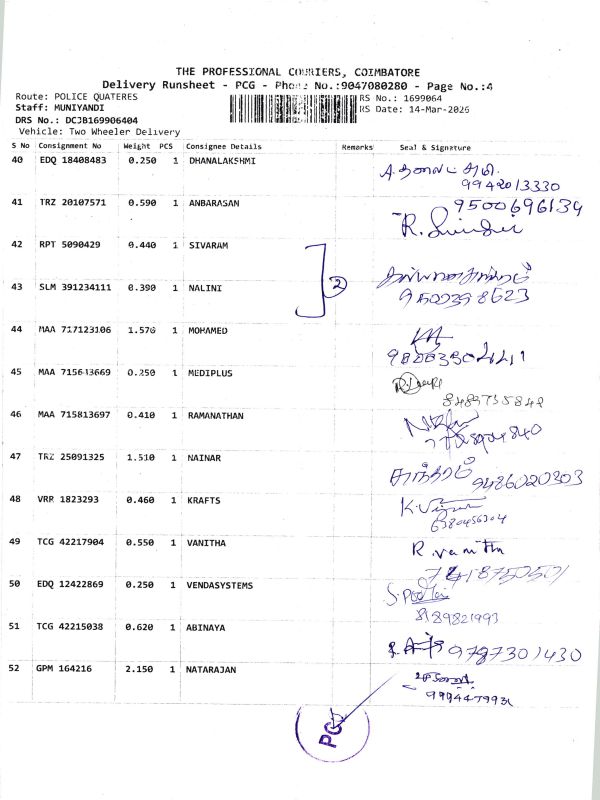 THE PROFESSIONAL COURIERS, COIMBATORE
Delivery Runsheet - PCG - Phone No.:9047080280 - Page No.:4
Route: POLICE QUATERES
RS No.: 1699064
Staff: MUNIYANDI
RS Date: 14-Mar-2026
DRS No.: DCJB169906404
Vehicle: Two Wheeler Delivery
S No Consignment No Weight PCS Consignee Details Remarks Seal & Signature
40 EDQ 18408483 0.250 1 DHANALAKSHMI
9942013330
41 TRZ 20107571 0.590 1 ANBARASAN 9500696134
42 RPT 5090429 0.440 1 SIVARAM
2
43 SLM 391234111 0.390 1 NALINI
44 MAA 717123106 1.570 1 MOHAMED
45 MAA 715613669 0.250 1 MEDIPLUS
46 MAA 715813697 0.410 1 RAMANATHAN
47 TRZ 25091325 1.510 1 NAINAR சுந்தரம் 9486020303
48 VRR 1823293 0.460 1 KRAFTS
6380456304
49 TCG 42217904 0.550 1 VANITHA R.vanitha
50 EDQ 12422869 0.250 1 VENDASYSTEMS
8189821993
51 TCG 42215038 0.620 1 ABINAYA 9787301430
52 GPM 164216 2.150 1 NATARAJAN
PCG